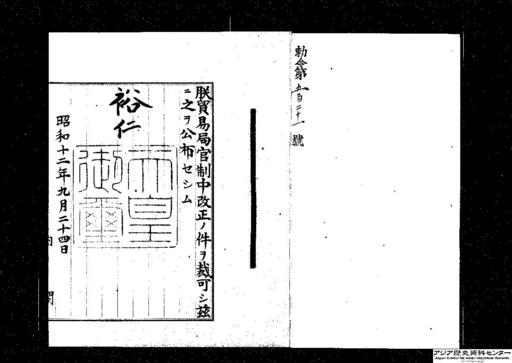 勅令第五百二十一號
朕貿易局官制中改正ノ件ヲ裁可シ玆
ニ之ヲ公布セシム
裕仁
天皇
御璽
昭和十二年九月二十四日
内閣
アジア歴史資料センター
Japan Center for Asian Historical Records